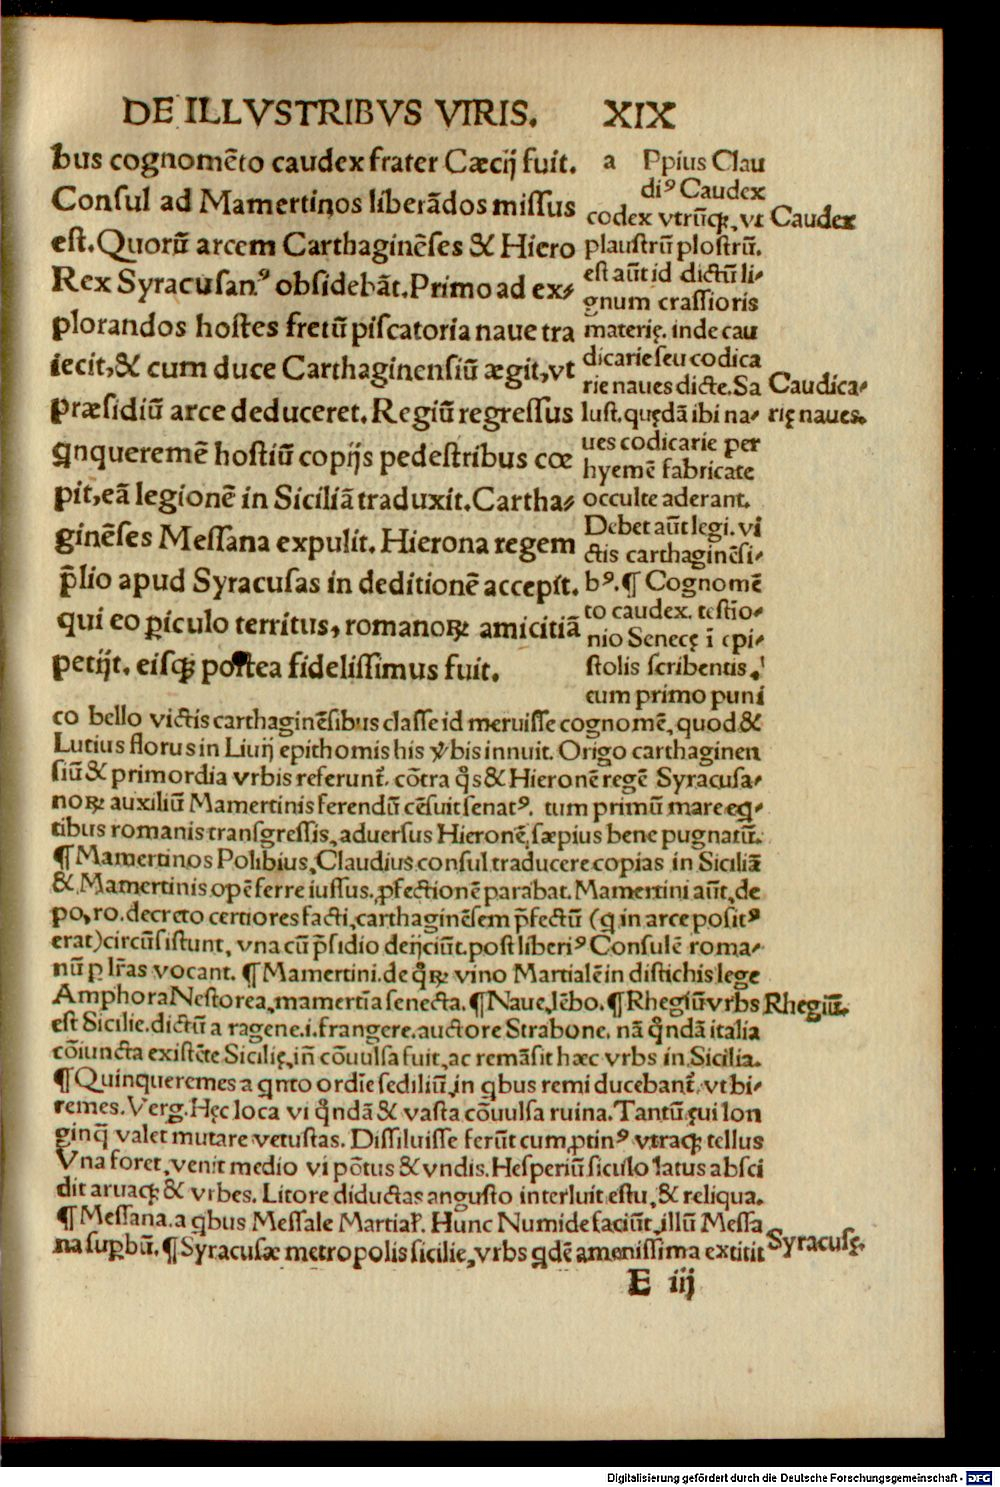 DE ILLVSTRIBVS VIRIS. XIX
bus cognomēto caudex frater Cæcij fuit.
Consul ad Mamertinos liberādos missus
est. Quorū arcem Carthaginēses & Hiero
Rex Syracusanꝰ obsidebāt. Primo ad ex/
plorandos hostes fretū piscatoria naue tra
iecit, & cum duce Carthaginensiū ægit, vt
præsidiū arce deduceret. Regiū regressus
ꝗnqueremē hostiū copijs pedestribus cœ
pit, eā legionē in Siciliā traduxit. Cartha/
ginēses Messana expulit. Hierona regem
p̄lio apud Syracusas in deditionē accepit.
qui eo ꝑiculo territus, romanoꝝ amicitiā
petijt. eisqꝫ postea fidelissimus fuit.
a Ppius Clau
diꝰ Caudex
codex vtrūqꝫ, vt
plaustrū plostrū.
est aūt id dictū li/
gnum crassioris
materię. inde cau
dicarie seu codica
rie naues dicte. Sa
lust. quędā ibi na/
ues codicarie per
hyemē fabricate
occulte aderant.
Debet aūt legi. vi
ctis carthaginēsi/
bꝰ. ¶ Cognomē
to caudex. testīo/
nio Senecę ī epi/
stolis scribentis,
cum primo puni
Caudex
Caudica/
rię naues.
co bello victis carthaginēsibus classe id meruisse cognomē, quod &
Lutius florus in Liuij epithomis his v̄bis innuit. Origo carthaginen
siū & primordia vrbis referunt̄. cōtra q̄s & Hieronē regē Syracusa/
noꝝ auxiliū Mamertinis ferendū cēsuit senatꝰ. tum primū mare eꝗ/
tibus romanis transgressis, aduersus Hieronē, sæpius bene pugnatū.
¶ Mamertinos Polibius, Claudius consul traducere copias in Siciliā
& Mamertinis opē ferre iussus, ꝓfectionē parabat. Mamertini aūt, de
po, ro. decreto certiores facti, carthaginēsem p̄fectū (ꝗ in arce positꝰ
erat) circūsistunt, vna cū p̄sidio deijciūt. post liberiꝰ Consulē roma/
nū ꝑ lr̄as vocant. ¶ Mamertini. de q̄ꝝ vino Martialē in distichis lege
Amphora Nestorea, mamertīa senecta. ¶ Naue, lēbo. ¶ Rhegiū vrbs
Rhegiū.
est Sicilie. dictū a ragene. i. frangere. auctore Strabone. nā q̄ndā italia
cōiuncta existēte Sicilię, in̄ cōuulsa fuit, ac remāsit hæc vrbs in Sicilia.
¶ Quinqueremes a ꝗnto ordīe sediliū, in ꝗbus remi ducebant̄. vt bi/
remes. Verg. Hęc loca vi q̄ndā & vasta cōuulsa ruina. Tantū ęui lon
ginq̄ valet mutare vetustas. Dissiluisse ferūt cum ꝓtinꝰ vtraqꝫ tellus
Vna foret, venit medio vi pōtus & vndis. Hesperiū siculo latus absci
dit aruaqꝫ & vrbes. Litore diductas angusto interluit estu, & reliqua.
¶ Messana. a ꝗbus Messale Martiaɫ. Hunc Numide faciūt, illū Messa
na suꝑbū. ¶ Syracusæ metropolis sicilie, vrbs ꝗdē amenissima extitit
Syracusę.
E iij
Digitalisierung gefördert durch die Deutsche Forschungsgemeinschaft - DFG